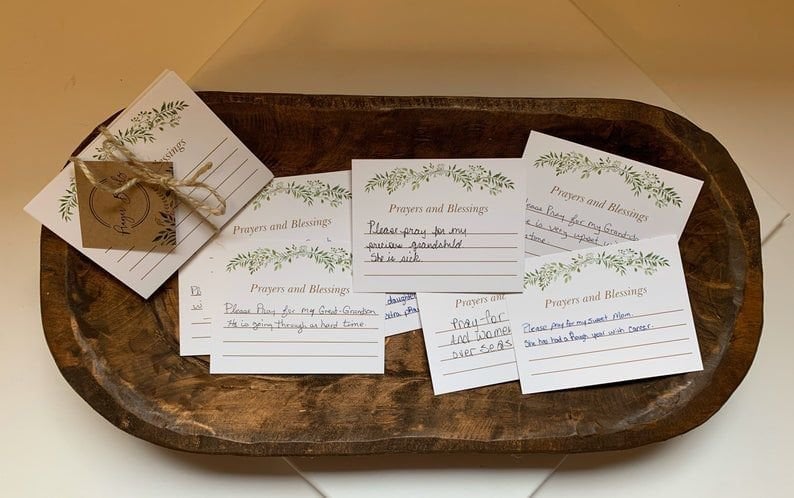 Blessings
Prayer
Prayers and Blessings
Please pray for my
precious grandchild.
She is sick.
Prayers and Blessings
Please Pray for my Great-Grandson
He is going through as hard time.
daughter
Prayers and Blessings
Please Pray for my Grand-son
is very upset
time.
Pray-for
And Women
over seas
Prayers and Blessings
Please pray for my sweet Mom.
She has had a rough year with Cancer.